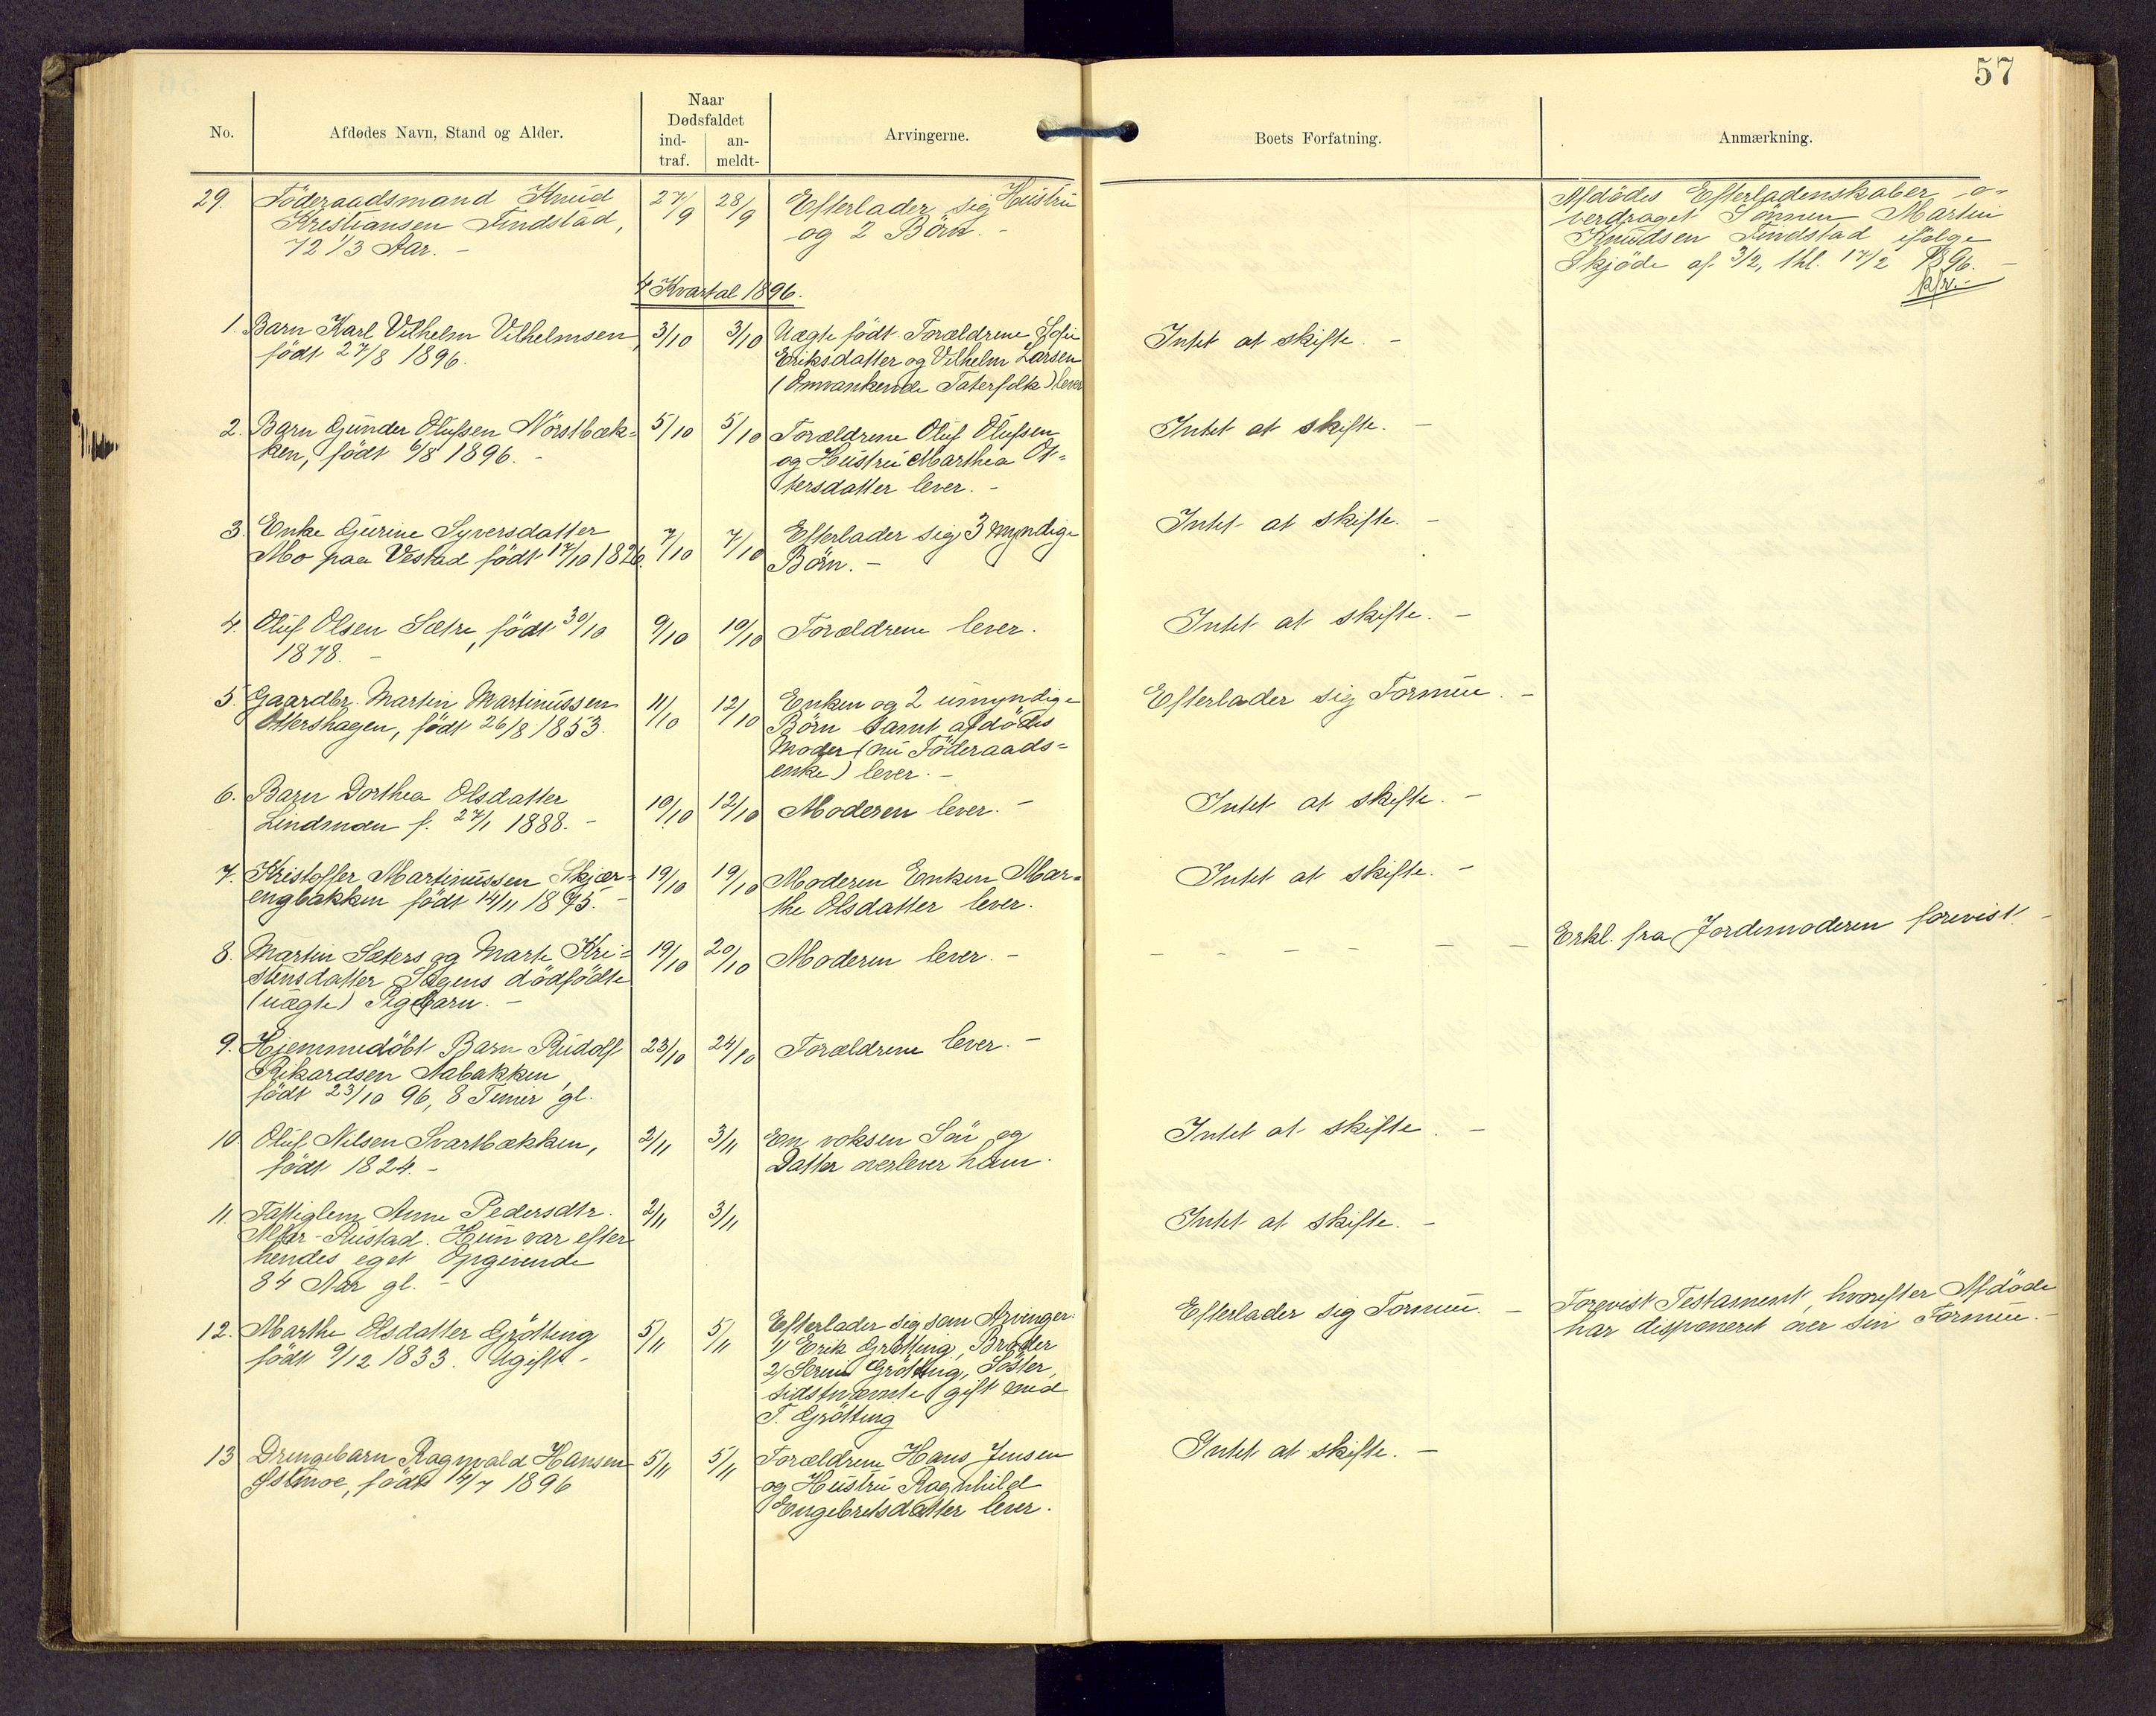 57
No.
Afdødes Navn, Stand og Alder.
Naar
Dødsfaldet
ind-
traf.
an-
meldt-
Arvingerne.
Boets Forfatning.
Anmærkning.
29. Föderaadsmand Knud
Kristiansen Findstad,
72 1/3 Aar. -
27/9
28/9
Efterlader sig Hustru
og 2 Börn. -
Afdödes Efterladenskaber o-
verdraget Sönnen Martin
Knudsen Findstad ifølge
Skjöde af 3/2, thl. 17/2 1896. -
4 Kvartal 1896.
1. Barn Karl Vilhelm Vilhelmsen,
födt 27/8 1896.
3/10
3/10
Uægte födt. Forældrene Sofie
Eriksdatter og Vilhelm Larsen
(Omvankende Taterfolk) lever
Intet at skifte. -
2. Barn Gunder Olufsen Nörstbæk=
ken, födt 6/8 1896. -
5/10
5/10
Forældrene Oluf Olufsen
og Hustru Marthea Ot=
tersdatter lever. -
Intet at skifte. -
3. Enke Gurine Syversdatter
Mo paa Vestad födt 17/10 1826.
7/10
7/10
Efterlader sig 3 myndige
Börn. -
Intet at skifte. -
4. Oluf Olsen Sætre, födt 30/10
1878. -
9/10
10/10
Forældrene lever.
Intet at skifte. -
5. Gaardbr. Martin Martinussen
Ottershagen, födt 26/8 1853.
11/10
12/10
Enken og 2 umyndige
Börn samt afdödes
Moder (nu Föderaads=
enke) lever. -
Efterlader sig Formue. -
6. Barn Dorthea Olsdatter
Lindmoen f. 27/1 1888. -
10/10
12/10
Moderen lever. -
Intet at skifte. -
7. Kristoffer Martinussen Skjær=
engbakken födt 14/11 1875. -
19/10
19/10
Moderen Enken Mar=
the Olsdatter lever.
Intet at skifte. -
8. Martin Sæters og Marte Kri=
stensdatter Sagens dödfödte
(uægte) Pigebarn. -
19/10
20/10
Moderen lever. -
- - - - - -
Erkl. fra Jordemoderen forevist. -
9. Hjemmedöbt Barn Rudolf
Rikardsen Aabakken,
födt 23/10 96, 8 Timer gl.
23/10
24/10
Forældrene lever. -
10. Oluf Nilsen Svartbækken,
födt 1824. -
2/11
3/11
En voksen Sön og
Datter overlever ham.
Intet at skifte. -
11. Fattiglem Anne Pedersdtr.
Rustad. Hun var efter
hendes eget Opgivende
84 Aar gl. -
2/11
3/11
Intet at skifte. -
12. Marthe Olsdatter Grötting
födt 9/12 1833. Ugift -
5/11
5/11
Efterlader sig som Arvinger:
1/ Erik Grötting, Broder
2/ Serine Grötting, Söster,
sidstnævnte gift med
T. Grötting
Efterlader sig Formue. -
Forevist Testament, hvorefter Afdöde
har disponeret over sin Formue. -
13 Drengebarn Ragnvald Hansen
Østmoe, födt 14/7 1896
5/11
5/11
Forældrene Hans Jensen
og Hustru Ragnhild
Engebretsdatter lever.
Intet at skifte. -